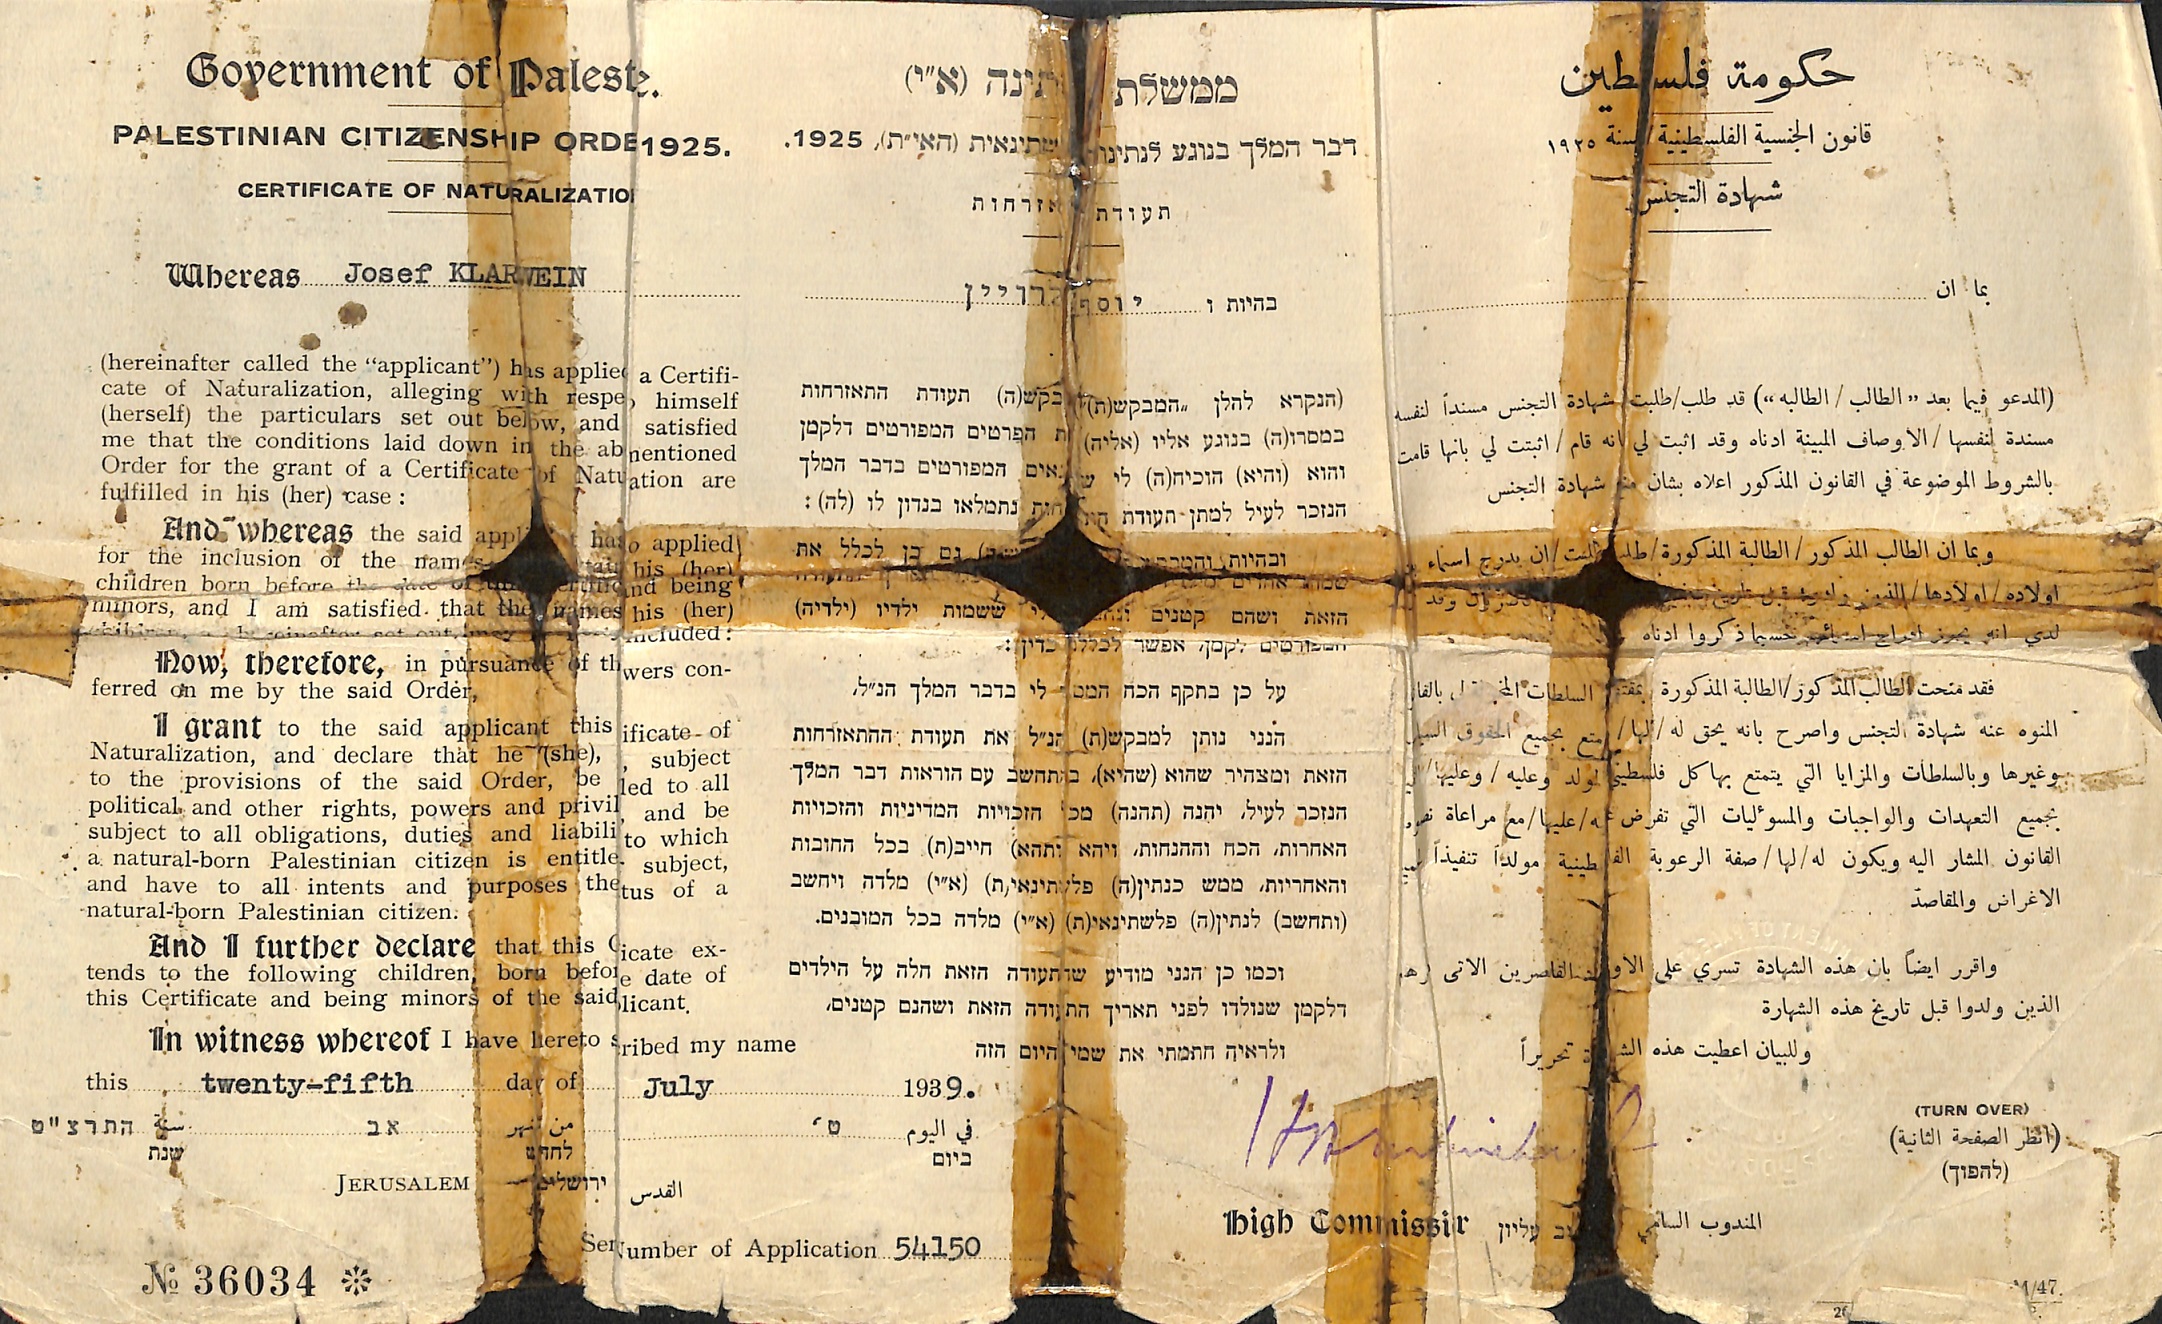 Government of Palest
PALESTINIAN CITIZENSHIP ORDE 1925.
CERTIFICATE OF NATURALIZATIO
Whereas Josef KLARWEIN
(hereinafter called the “applicant”) has applied a Certifi-
cate of Naturalization, alleging with respe himself
(herself) the particulars set out below, and satisfied
me that the conditions laid down in the ab mentioned
Order for the grant of a Certificate of Natu ation are
fulfilled in his (her) case :
And whereas the said has applied
for the inclusion of the names his (her)
children born before the date of and being
minors, and I am satisfied that the names his (her)
included :
Now, therefore, in pursuance of th wers con-
ferred on me by the said Order,
I grant to the said applicant this ificate of
Naturalization, and declare that he (she), subject
to the provisions of the said Order, be led to all
political and other rights, powers and privil and be
subject to all obligations, duties and liabili to which
a natural-born Palestinian citizen is entitle subject,
and have to all intents and purposes the tus of a
natural-born Palestinian citizen.
And I further declare that this C icate ex-
tends to the following children, born befor e date of
this Certificate and being minors of the said licant.
In witness whereof I have hereto s ribed my name
this twenty-fifth day of July 1939.
سنة התרצ"ט من شهر אב في اليوم ט'
שנת לחדש ביום
JERUSALEM ירושלים القدس
Ser Number of Application 54150
№ 36034
ממשלת תינה (א״י)
דבר המלך בנוגע לנתינו שתינאית (הא״ית), 1925.
תעודת אזרחות
בהיות ו יוסף רויין
(הנקרא להלן „המבקש(ת) בקש(ה) תעודת התאזרחות
במסרו(ה) בנוגע אליו (אליה) ת הפרטים המפורטים דלקמן
והוא (והיא) הוכיח(ה) לי ש נאים המפורטים בדבר המלך
הנזכר לעיל למתן תעודת נתמלאו בנדון לו (לה) :
ובהיות גם כן לכלל את
הזאת ושהם קטנים ששמות ילדיו (ילדיה)
המפורטים לקמן, אפשר לכללם כדין :
על כן בתקף הכח לי בדבר המלך הנ״ל,
הנני נותן למבקש(ת) הנ״ל את תעודת ההתאזרחות
הזאת ומצהיר שהוא (שהיא), בהתחשב עם הוראות דבר המלך
הנזכר לעיל, יהנה (תהנה) מכל הזכויות המדיניות והזכויות
האחרות, הכח וההנחות, ויהא (ותהא) חייב(ת) בכל החובות
והאחריות, ממש כנתין(ה) פלשתינאי(ת) (א״י) מלדה ויחשב
(ותחשב) לנתין(ה) פלשתינאי(ת) (א״י) מלדה בכל המובנים.
וכמו כן הנני מודיע שהתעודה הזאת חלה על הילדים
דלקמן שנולדו לפני תאריך התעודה הזאת ושהנם קטנים.
ולראיה חתמתי את שמי היום הזה
High Commissi r
حكومة فلسطين
قانون الجنسية الفلسطينية / لسنة ١٩٢٥
شهادة التجنس
بما ان
(المدعو فيما بعد «الطالب / الطالبه») قد طلب/طلبت شهادة التجنس مسنداً لنفسه
مسندة لنفسها / الاوصاف المبينة ادناه وقد اثبت لي انه قام / اثبتت لي بانها قامت
بالشروط الموضوعة في القانون المذكور اعلاه بشان شهادة التجنس
وبما ان الطالب المذكور / الطالبة المذكورة / ان يدرج اسماء
اولاده / اولادها /
لدي انه يجوز ادراج حسبما ذكروا ادناه
فقد منحت الطالب المذكور/الطالبة المذكورة السلطات
المنوه عنه شهادة التجنس واصرح بانه يحق له / لها / بجميع الحقوق
وغيرها وبالسلطات والمزايا التي يتمتع بها كل ولد وعليه / وعليها
بجميع التعهدات والواجبات والمسوئليات التي تفرض عليها / مع مراعاة
القانون المشار اليه ويكون له / لها / صفة الرعوية مولداً تنفيذاً
الاغراض والمقاصد
واقرر ايضاً بان هذه الشهادة تسري على القاصرين الاتي
الذين ولدوا قبل تاريخ هذه الشهادة
وللبيان اعطيت هذه تحريراً
(TURN OVER)
(انظر الصفحة الثانية)
(להפוך)
المندوب السامي עליון
/47.